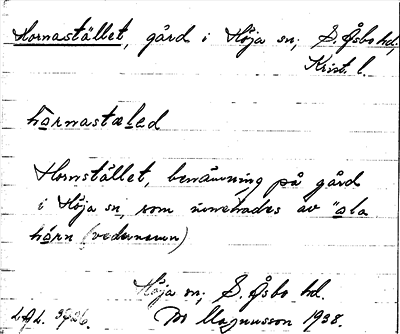 Hornastället, gård i Höja sn, S. Åsbo hd,
Krist. l.
hornastæled
Hornstället, benämning på gård
i Höja sn, som innehades av "ola
hörn (vedernamn)
Höja sn, S. Åsbo hd.
LAL. 3926. Magnusson 1938.